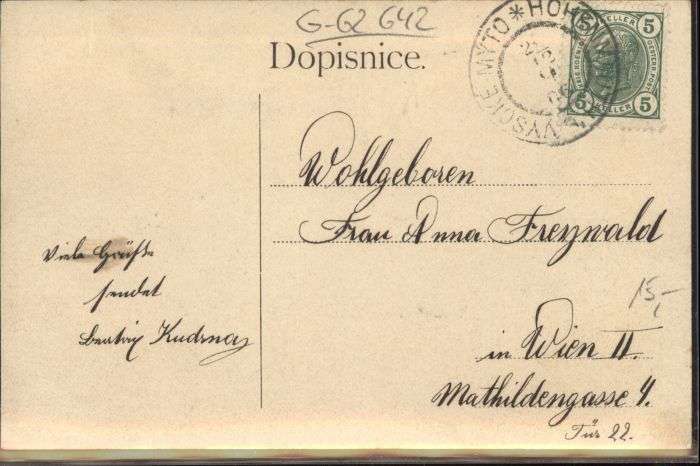 G-G2 642
Dopisnice.
VYSOKÉ MÝTO * HOHENMAUTH
5 HELLER 5
5 HELLER 5
Wohlgeboren
Frau Anna Freywald
in Wien II.
Mathildengasse 4.
Tür 22.
15,-
Viele Grüße
sendet
Kudrnaj